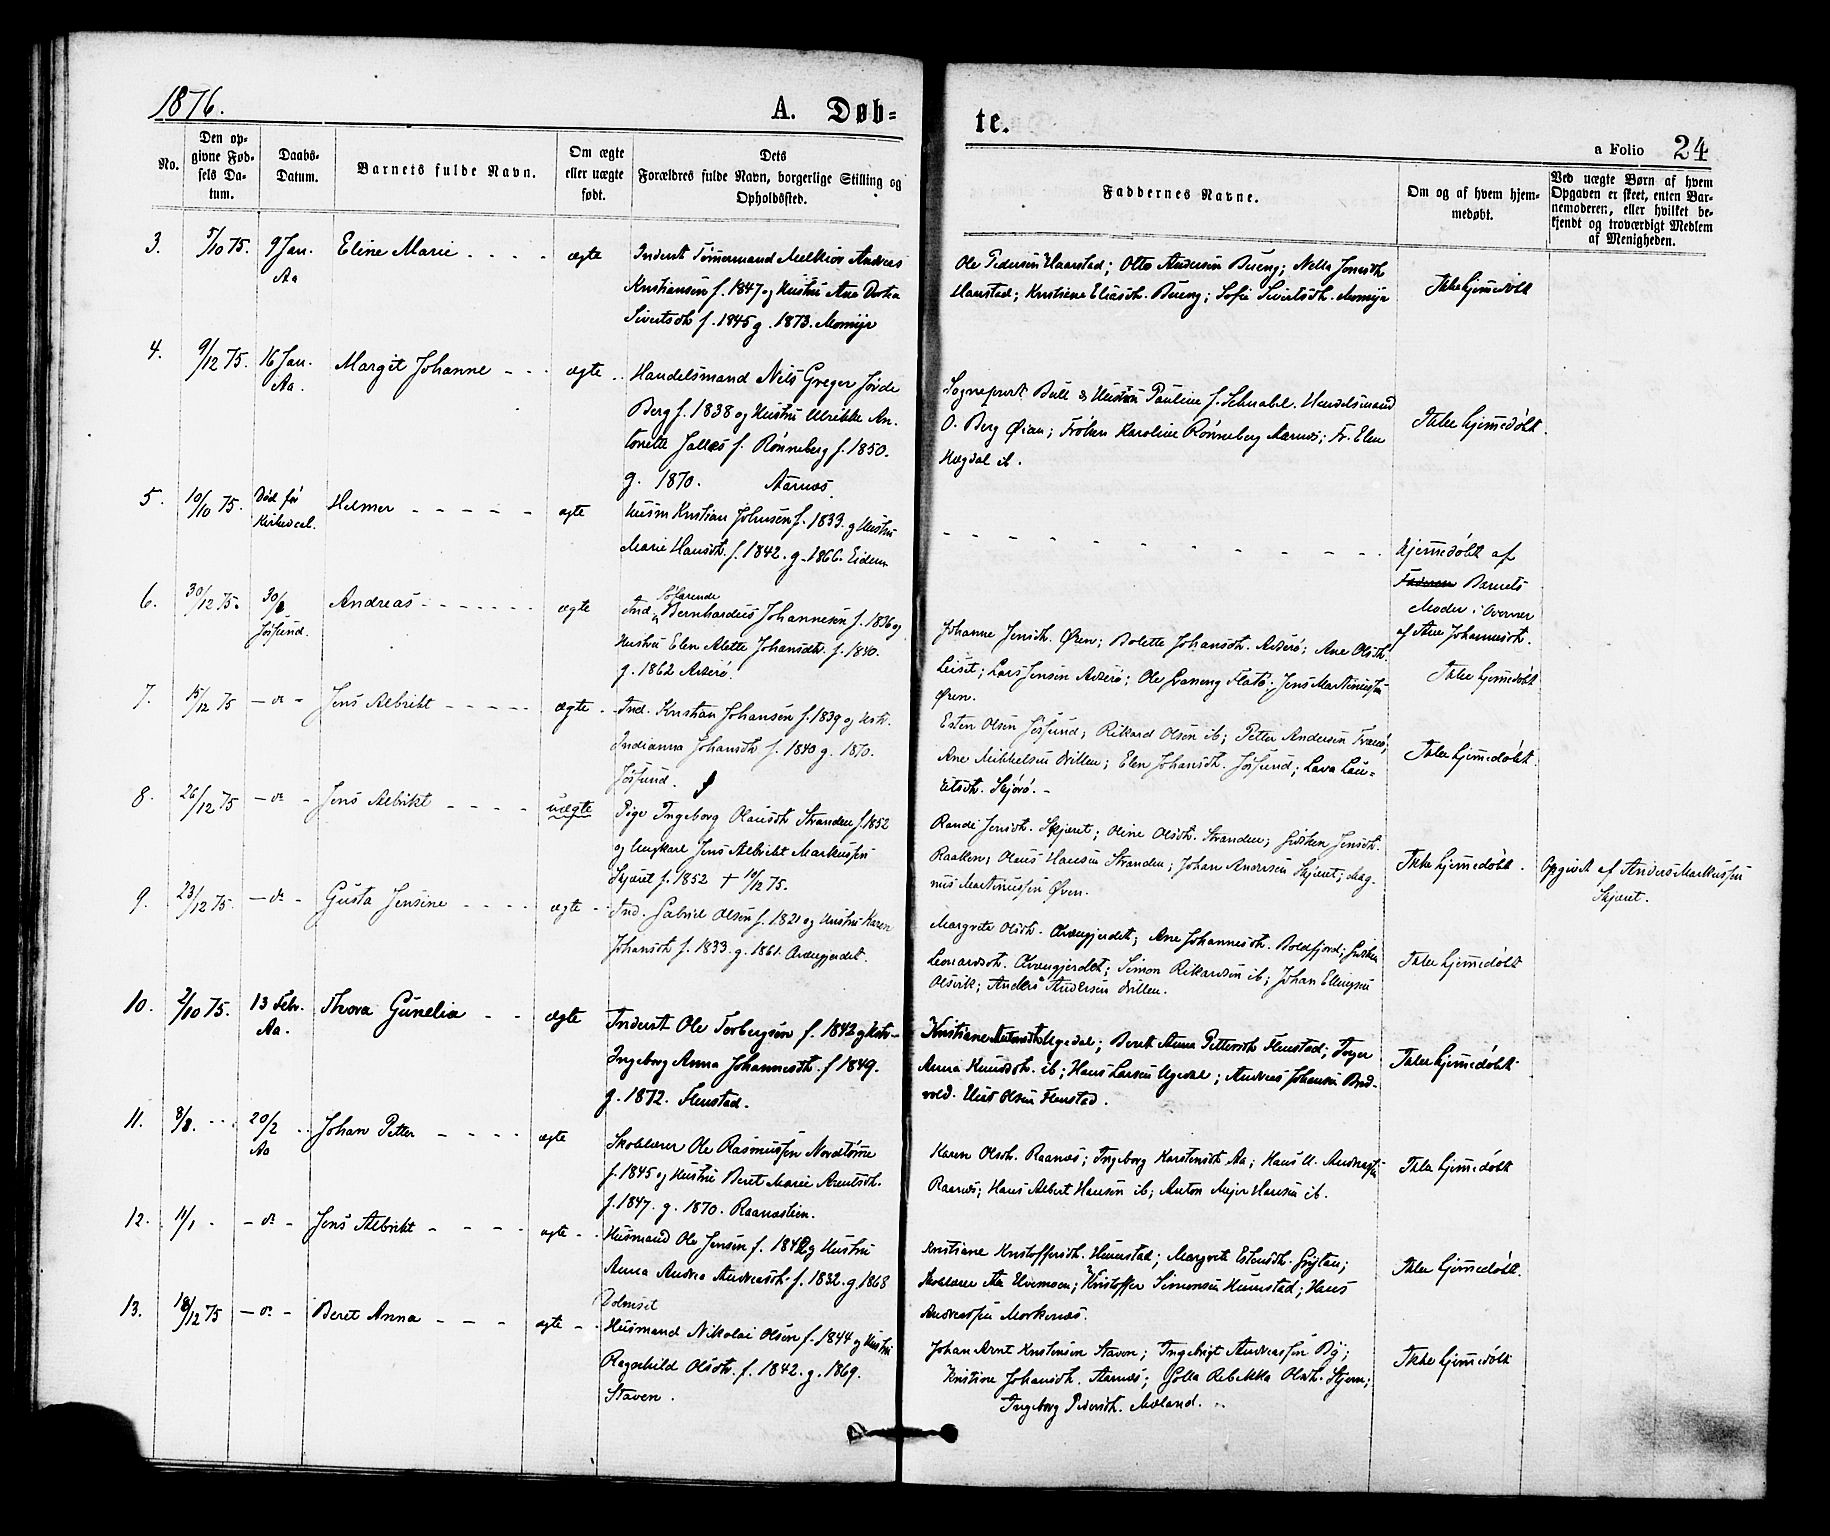 1876.
A. Døb=
te.
a Folio 24
No.
Den op-
givne Fød-
sels Da-
tum.
Daabs-
Datum.
Barnets fulde Navn.
Om ægte
eller uægte
født.
Dets
Forældres fulde Navn, borgerlige Stilling og
Opholdssted.
Faddernes Navne.
Om og af hvem hjem-
medøbt.
Ved uægte Børn af hvem
Opgaven er skeet, enten Bar-
nemoderen, eller hvilket be-
kjendt og troværdigt Medlem
af Menigheden.
3. 5/10 75. 9 Jan. Aa Eline Marie ægte
Inderst Tømermand Melkior Andreas
Kristiansen f. 1847 og Hustru Ane Dortea
Sivertsdtr f. 1845 g. 1873. Momyr
Ole Pedersen Haarstad; Otto Andersen Bueng; Nella Jonsdtr
Haarstad; Kristiane Eliasdtr. Bueng; Sofie Sivertsdtr. Momyr
Ikke hjemmedøbt
4. 9/12 75. 16 Jan. Aa. Margit Johanne ægte
Handelsmand Nils Greger
Berg f. 1838 og Hustru Ulrikke An-
tonette f. Rønneberg f. 1850.
g. 1870. Aarnæs.
Sogneprest Bull & Hustru Pauline f. Schnabel. Handelsmand
O. Berg Øian; Frøken Karoline Rønneberg Aarnæs; Fr. Elen
Hægdal ib.
Ikke hjemmedøbt.
5. 10/10 75. Død før Kirkedaab. Helmer ægte
Husm Kristian Johnsen f. 1833. og Hustru
Marie Hansdtr. f. 1842. g. 1866. Eidem
hjemmedøbt af
Faderen Barnets
Moder i Overvær
af Ane Johannesdtr.
6. 30/12 75. 30/1 Jøssund. Andreas ægte
søfarende
Ind. Bernhardus Johannesen f. 1836 og
Hustru Elen Alette Johansdtr. f. 1840.
g. 1862 Asserø.
Johanne Jensdtr. Øren; Bolette Johansdtr. Asserø; Ane Olsdtr.
Leiset; Lars Jensen Asserø; Ole Flatø; Jens Martinussen
Øren.
Ikke hjemmedøbt
7. 15/12 75 — do - Jens Albrikt ægte
Ind. Kristian Johansen f. 1839 og Hstr.
Indianna Johansdtr f. 1840 g. 1870.
Jøssund.
Esten Olsen Jøssund; Rikard Olsen ib; Petter Andersen
Ane Mikkelsen Villen; Elen Johansdtr. Jøssund; Lava Lau-
ritsdtr. Skjørø.
Ikke hjemmedøbt.
8. 26/12 75 — do - Jens Albrikt uægte
Pige Ingeborg Olausdtr Stranden f. 1852
og Ungkarl Jens Albrikt Markussen
Skjæret f. 1852 † 10/12 75.
Randi Jensdtr. Skjæret; Oline Olsdtr. Stranden; Jensdtr.
Raaken; Olaus Hansen Stranden; Johan Andersen Skjæret; Mag-
nus Martinussen Øren.
Ikke hjemmedøbt. Opgivet af Anders Markussen
Skjæret.
9. 23/12 75. — do - Gusta Jensine ægte
Ind. Gabriel Olsen f. 1821 og Hustru Karen
Johansdtr f. 1833. g. 1861.
Margrete Olsdtr. Ane Johannesdtr. Boldfjord;
Leonardsdtr. Simon Rikardsen ib; Johan Ellingsen
Olsvik; Anders Andersen Villen.
Ikke hjemmedøbt
10. 2/10 75. 13 Febr. Aa. Thora Gunelia ægte
Inderst Ole Torbergsen f. 1842 og Hstr-
Ingeborg Anna Johannesdtr. f 1849.
g. 1872. Flenstad.
Kristiane Antonsdtr Ugedal; Beret Anna Pettersdtr Flenstad; Inger
Anna Knudsdtr. ib; Hans Larsen Ugedal; Andreas Johansen Bred-
vold. Olsen Flenstad.
Ikke hjemmedøbt
11. 8/8. 20/2 Aa Johan Petter ægte
Skolelærer Ole Rasmussen Nordtømme
f. 1845 og Hustru Beret Marie Arentsdtr.
f. 1847. g. 1870. Raanæslien.
Karen Olsdtr. Raanæs; Ingeborg Karstensdtr Aa; Hans U. Andreassen
Raanæs; Hans Albert Hansen ib; Anton Mejer Hansen ib.
Ikke hjemmedøbt
12. 11/1 - — do - Jens Albrikt ægte
Husmand Ole Jensen f. 1842 og Hustru
Anna Andrea Andreasdtr. f. 1832. g. 1868
Dolmset
Kristiane Kristoffersdtr. Humstad; Margrete Estensdtr. Grytan;
Skolelærer Aa Kristoffer Simonsen Humstad; Hans
Andreassen Morkenæs.
Ikke hjemmedøbt.
13. 18/12 75 — do - Beret Anna ægte
Husmand Nikolai Olsen f. 1844 og Hustru
Ragnhild Olsdtr. f. 1842. g. 1869.
Staven.
Johan Arnt Kristensen Staven; Ingebrigt Andreassen By;
Kristine Johansdtr. Aarnæs; Golla Rebekka Olsdtr. Stjern;
Ingeborg Pedersdtr. Moland.
Ikke hjemmedøbt